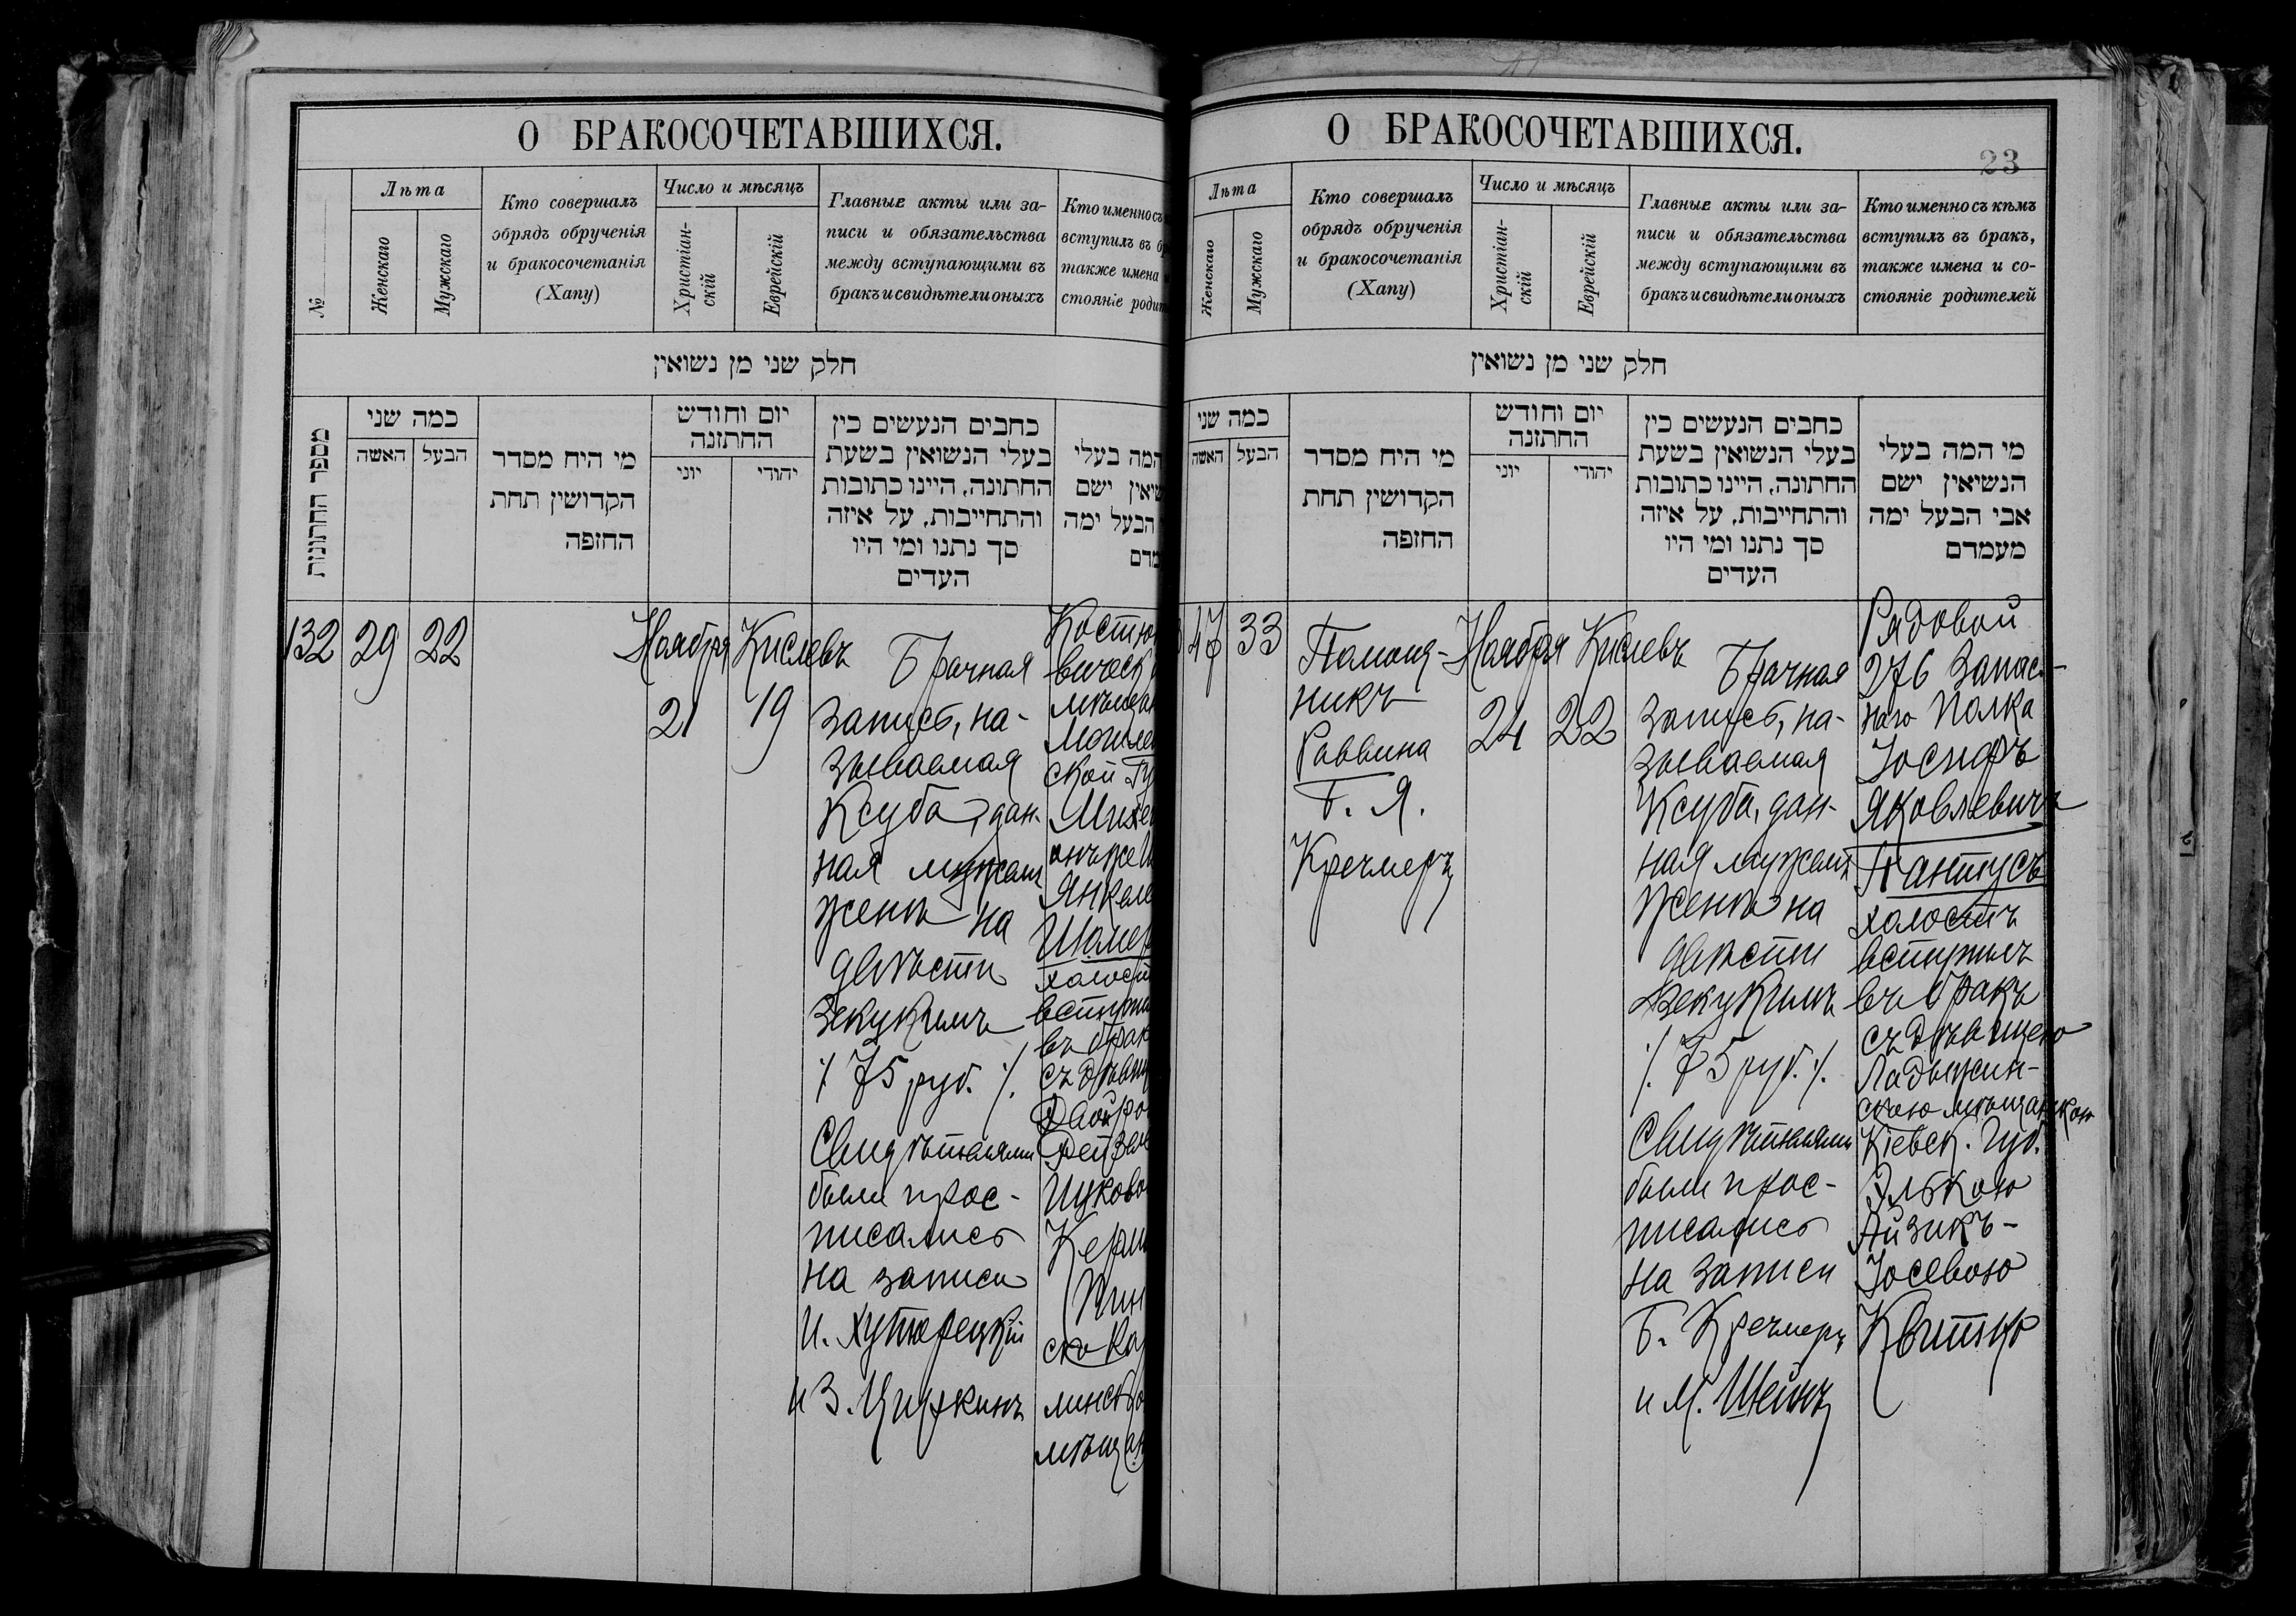 О БРАКОСОЧЕТАВШИХСЯ.
№
Лѣта
Женскаго
Мужскаго
Кто совершалъ
обрядъ обрученія
и бракосочетанія
(Хапу)
Число и мѣсяцъ
Христіан-
скій
Еврейскій
Главные акты или за-
писи и обязательства
между вступающими въ
бракъ и свидѣтели оныхъ
Кто именно съ
вступилъ въ б
также имена
стояніе родит
חלק שני מן נשואין
מספר החתונות
כמה שני
האשה
הבעל
מי היח מסדר
הקדושין תחת
החזפה
יום וחודש
החתזנה
יוני
יהודי
כחבים הנעשים כין
בעלי הנשואין בשעת
החתונה, היינו כתובות
והתחייבות, על איזה
סך נתנו ומי היו
העדים
המה בעלי
שיאין ישם
הבעל ימה
מדם
132
29
22
Ноября
21
Кислевъ
19
Брачная
запись, на-
зываемая
Ксуба, дан-
ная мужемъ
женѣ на
двѣсти
Зекукимъ
⁒ 75 руб. ⁒
Свидѣтелями
были и рос-
писались
на записи
И. Хуторецкій
и З. Цирткинъ
Костю
вическ
мѣщан
Могиле
ской Гу
Янкеле
холост
вступил
въ брак
съ дѣвиц
Ицково
мѣщан
О БРАКОСОЧЕТАВШИХСЯ.
23
Лѣта
Женскаго
Мужскаго
Кто совершалъ
обрядъ обрученія
и бракосочетанія
(Хапу)
Число и мѣсяцъ
Христіан-
скій
Еврейскій
Главные акты или за-
писи и обязательства
между вступающими въ
бракъ и свидѣтели оныхъ
Кто именно съ кѣмъ
вступилъ въ бракъ,
также имена и со-
стояніе родителей
חלק שני מן נשואין
כמה שני
האשה
הבעל
מי היח מסדר
הקדושין תחת
החזפה
יום וחודש
החתזנה
יוני
יהודי
כחבים הנעשים כין
בעלי הנשואין בשעת
החתונה, היינו כתובות
והתחייבות, על איזה
סך נתנו ומי היו
העדים
מי המה בעלי
הנשיאין ישם
אבי הבעל ימה
מעמדם
47
33
Помощ-
никъ
Раввина
Б. Я.
Кречмеръ
Ноября
24
Кислевъ
22
Брачная
запись, на-
зываемая
Ксуба, дан-
ная мужемъ
женѣ на
двѣсти
Зекукимъ
⁒ 75 руб. ⁒
Свидѣтелями
были и рос-
писались
на записи
Б. Кречмеръ
и М. Шейнъ
Рядовой
276 Запас-
наго Полка
Іосифъ
Яковлевичъ
Пантусъ
холостъ
вступилъ
въ бракъ
съ дѣвицею
Ладыжин-
скою мѣщанкою
Кіевск. Губ.
Элькою
Айзикъ-
Іосевою
Квитко